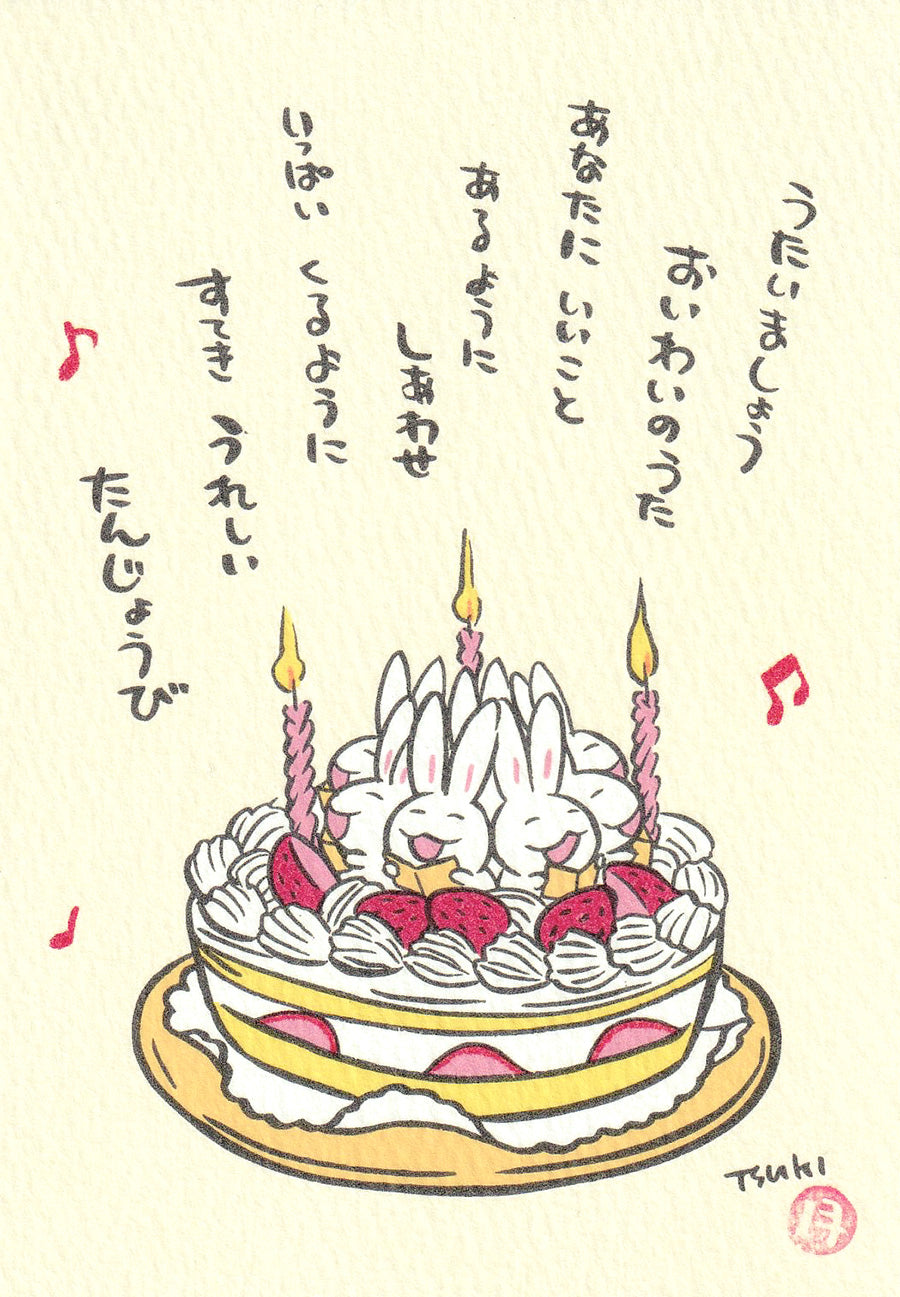 うたいましょう
おいわいのうた
あなたに いいこと
あるように
しあわせ
いっぱい くるように
すてき うれしい
たんじょうび
TSUKI